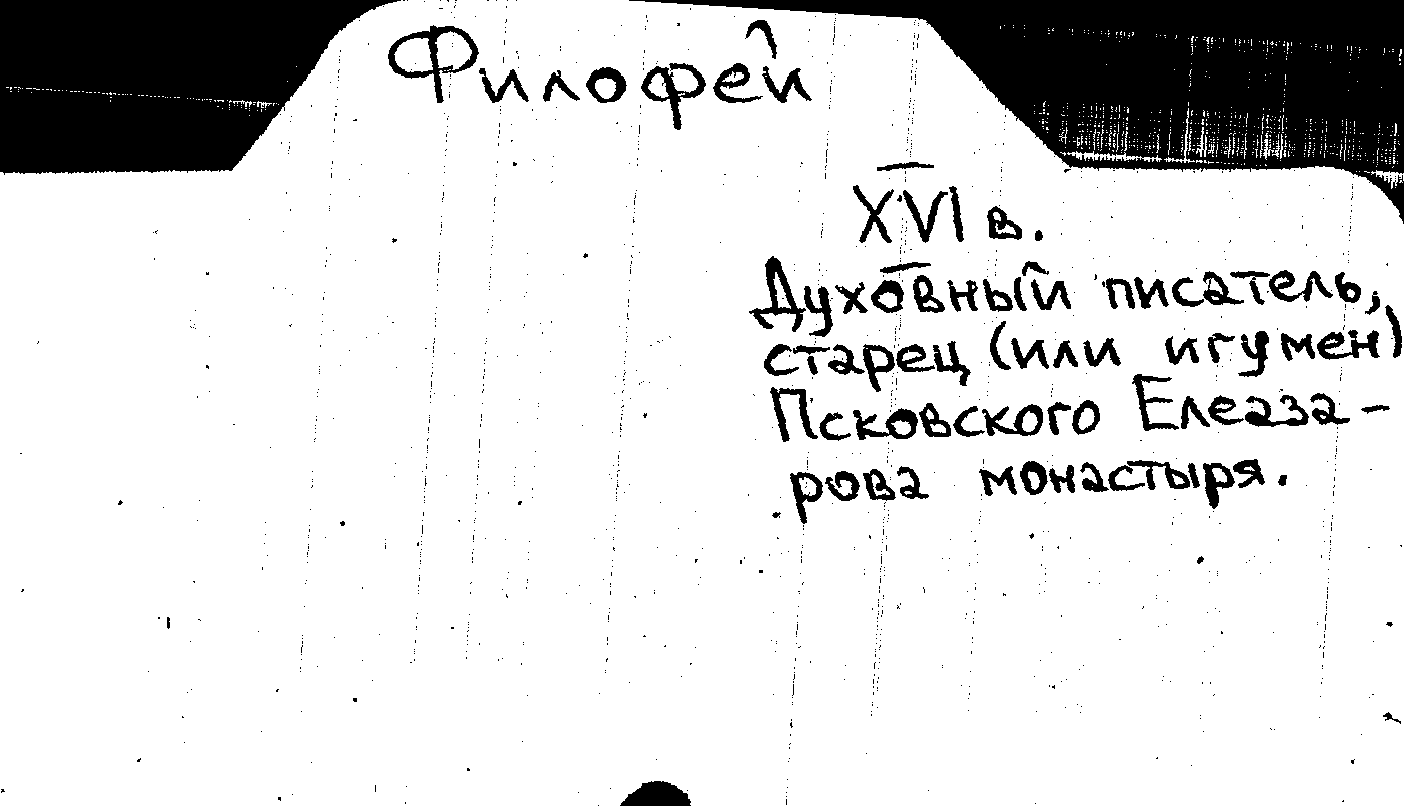 Филофей
XVI в.
Духовный писатель,
старец (или игумен)
Псковского Елеаза-
рова монастыря.